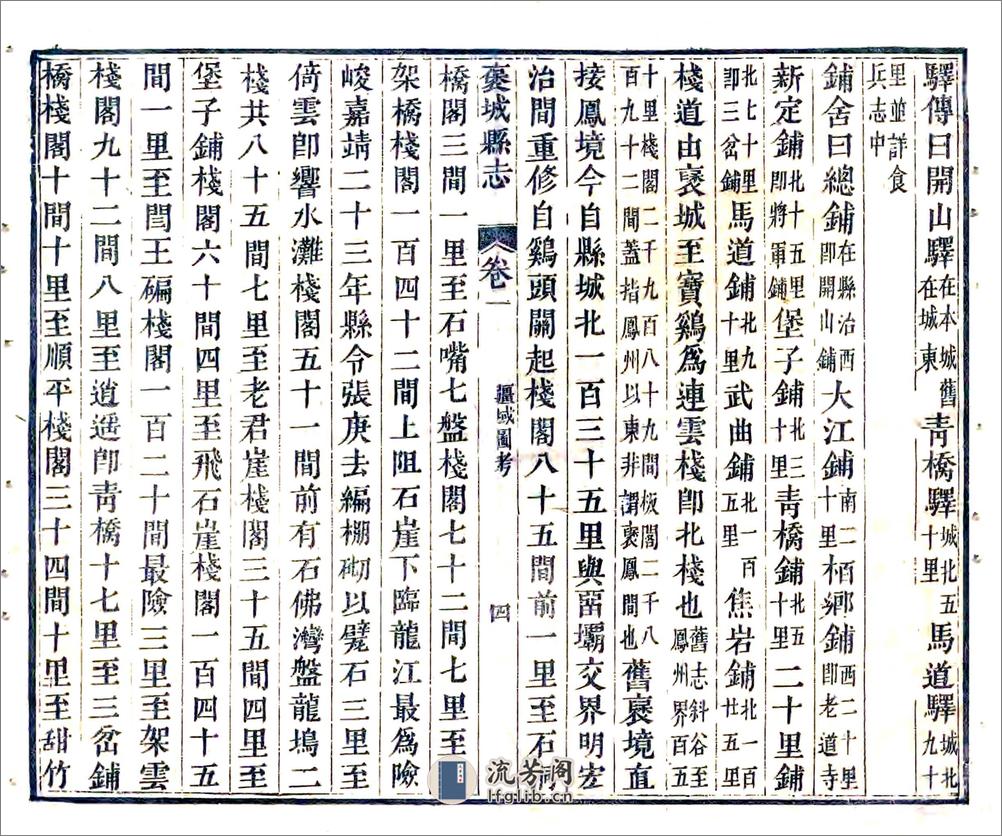 驛傳曰開山驛在本城舊在城東青橋驛城北五十里馬道驛城北九十
里並詳食兵志中
鋪舍曰總鋪在縣治西卽開山鋪大江鋪南二十里栢鄉鋪西二十里卽老道寺
新定鋪北十五里卽將軍鋪堡子鋪北三十里青橋鋪北五十里二十里鋪
北七十里卽三岔鋪馬道鋪北九十里武曲鋪北一百五里焦岩鋪北一百廿五里
棧道由褒城至寶鷄爲連雲棧卽北棧也舊志斜谷至鳳州界百五
十里棧閣二千九百八十九間板閣二千八百九十二間蓋指鳳州以東非謂褒鳳間也舊褒境直
接鳳境今自縣城北一百三十五里與畱壩交界明宏
治間重修自鷄頭關起棧閣八十五間前一里至石
褒城縣志 卷二 疆域圖考 四
橋閣三間一里至石嘴七盤棧閣七十二間七里至
架橋棧閣一百四十二間上阻石崖下臨龍江最爲險
峻嘉靖二十三年縣令張庚去編棚砌以甓石三里至
倚雲卽響水灘棧閣五十一間前有石佛灣盤龍塢二
棧共八十五間七里至老君崖棧閣三十五間四里至
堡子鋪棧閣六十間四里至飛石崖棧閣一百四十五
間一里至閻王碥棧閣一百二十間最險三里至架雲
棧閣九十二間八里至逍遥卽青橋十七里至三岔鋪
橋棧閣十間十里至順平棧閣三十四間十里至甜竹
流芳閣
lfglib.cn